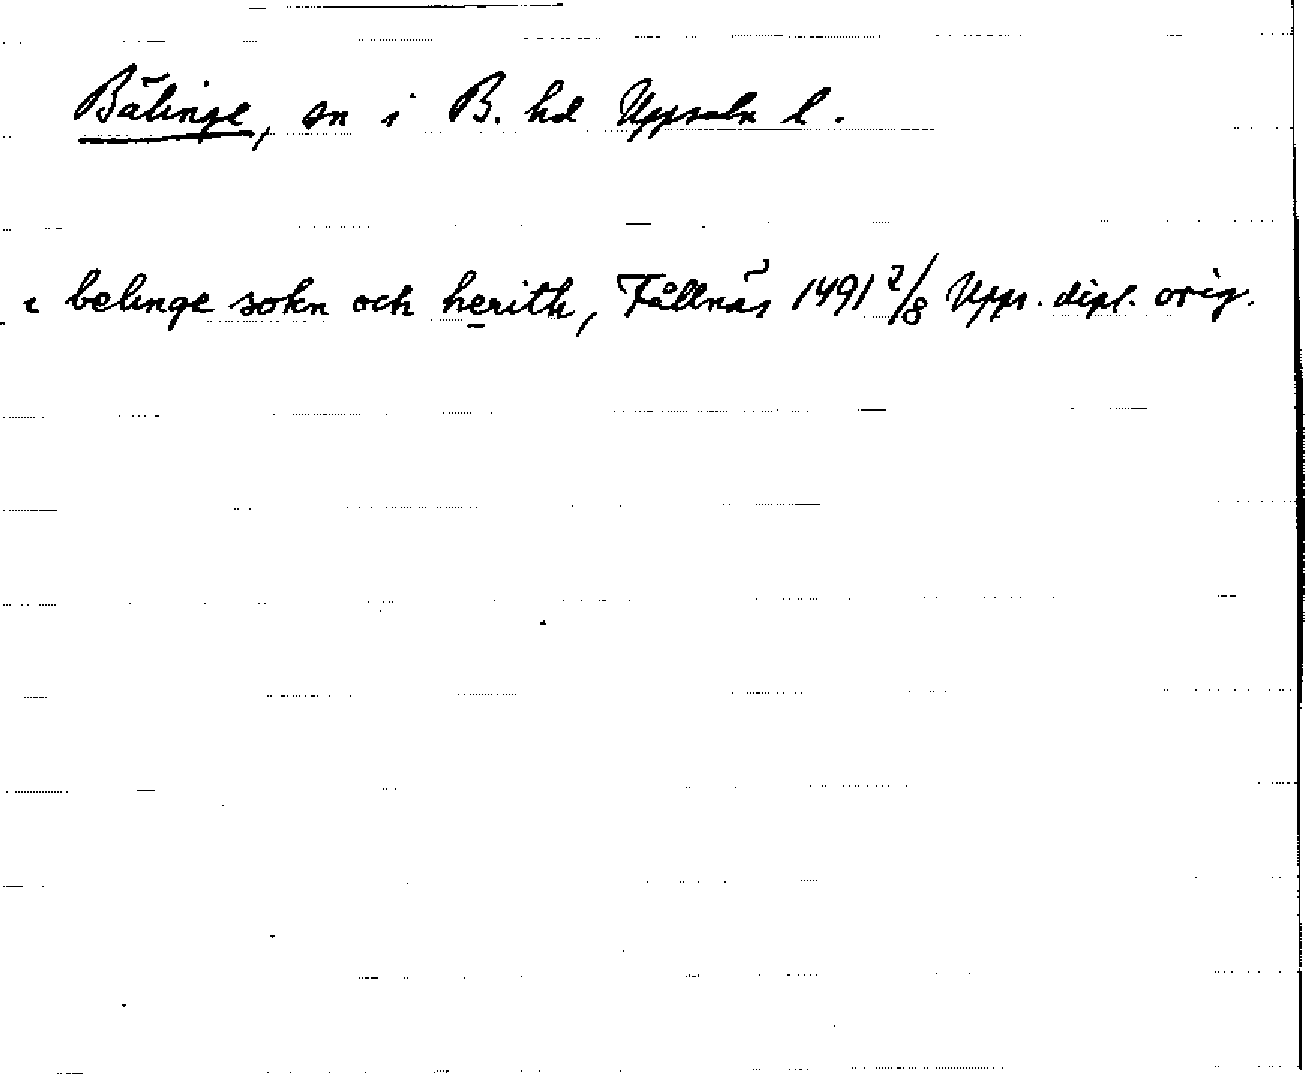 Bälinge, sn i B. hd Uppsala l.
i belinge sokn och herith, Fållnäs 1491 2/8 Upps. dipl. orig.